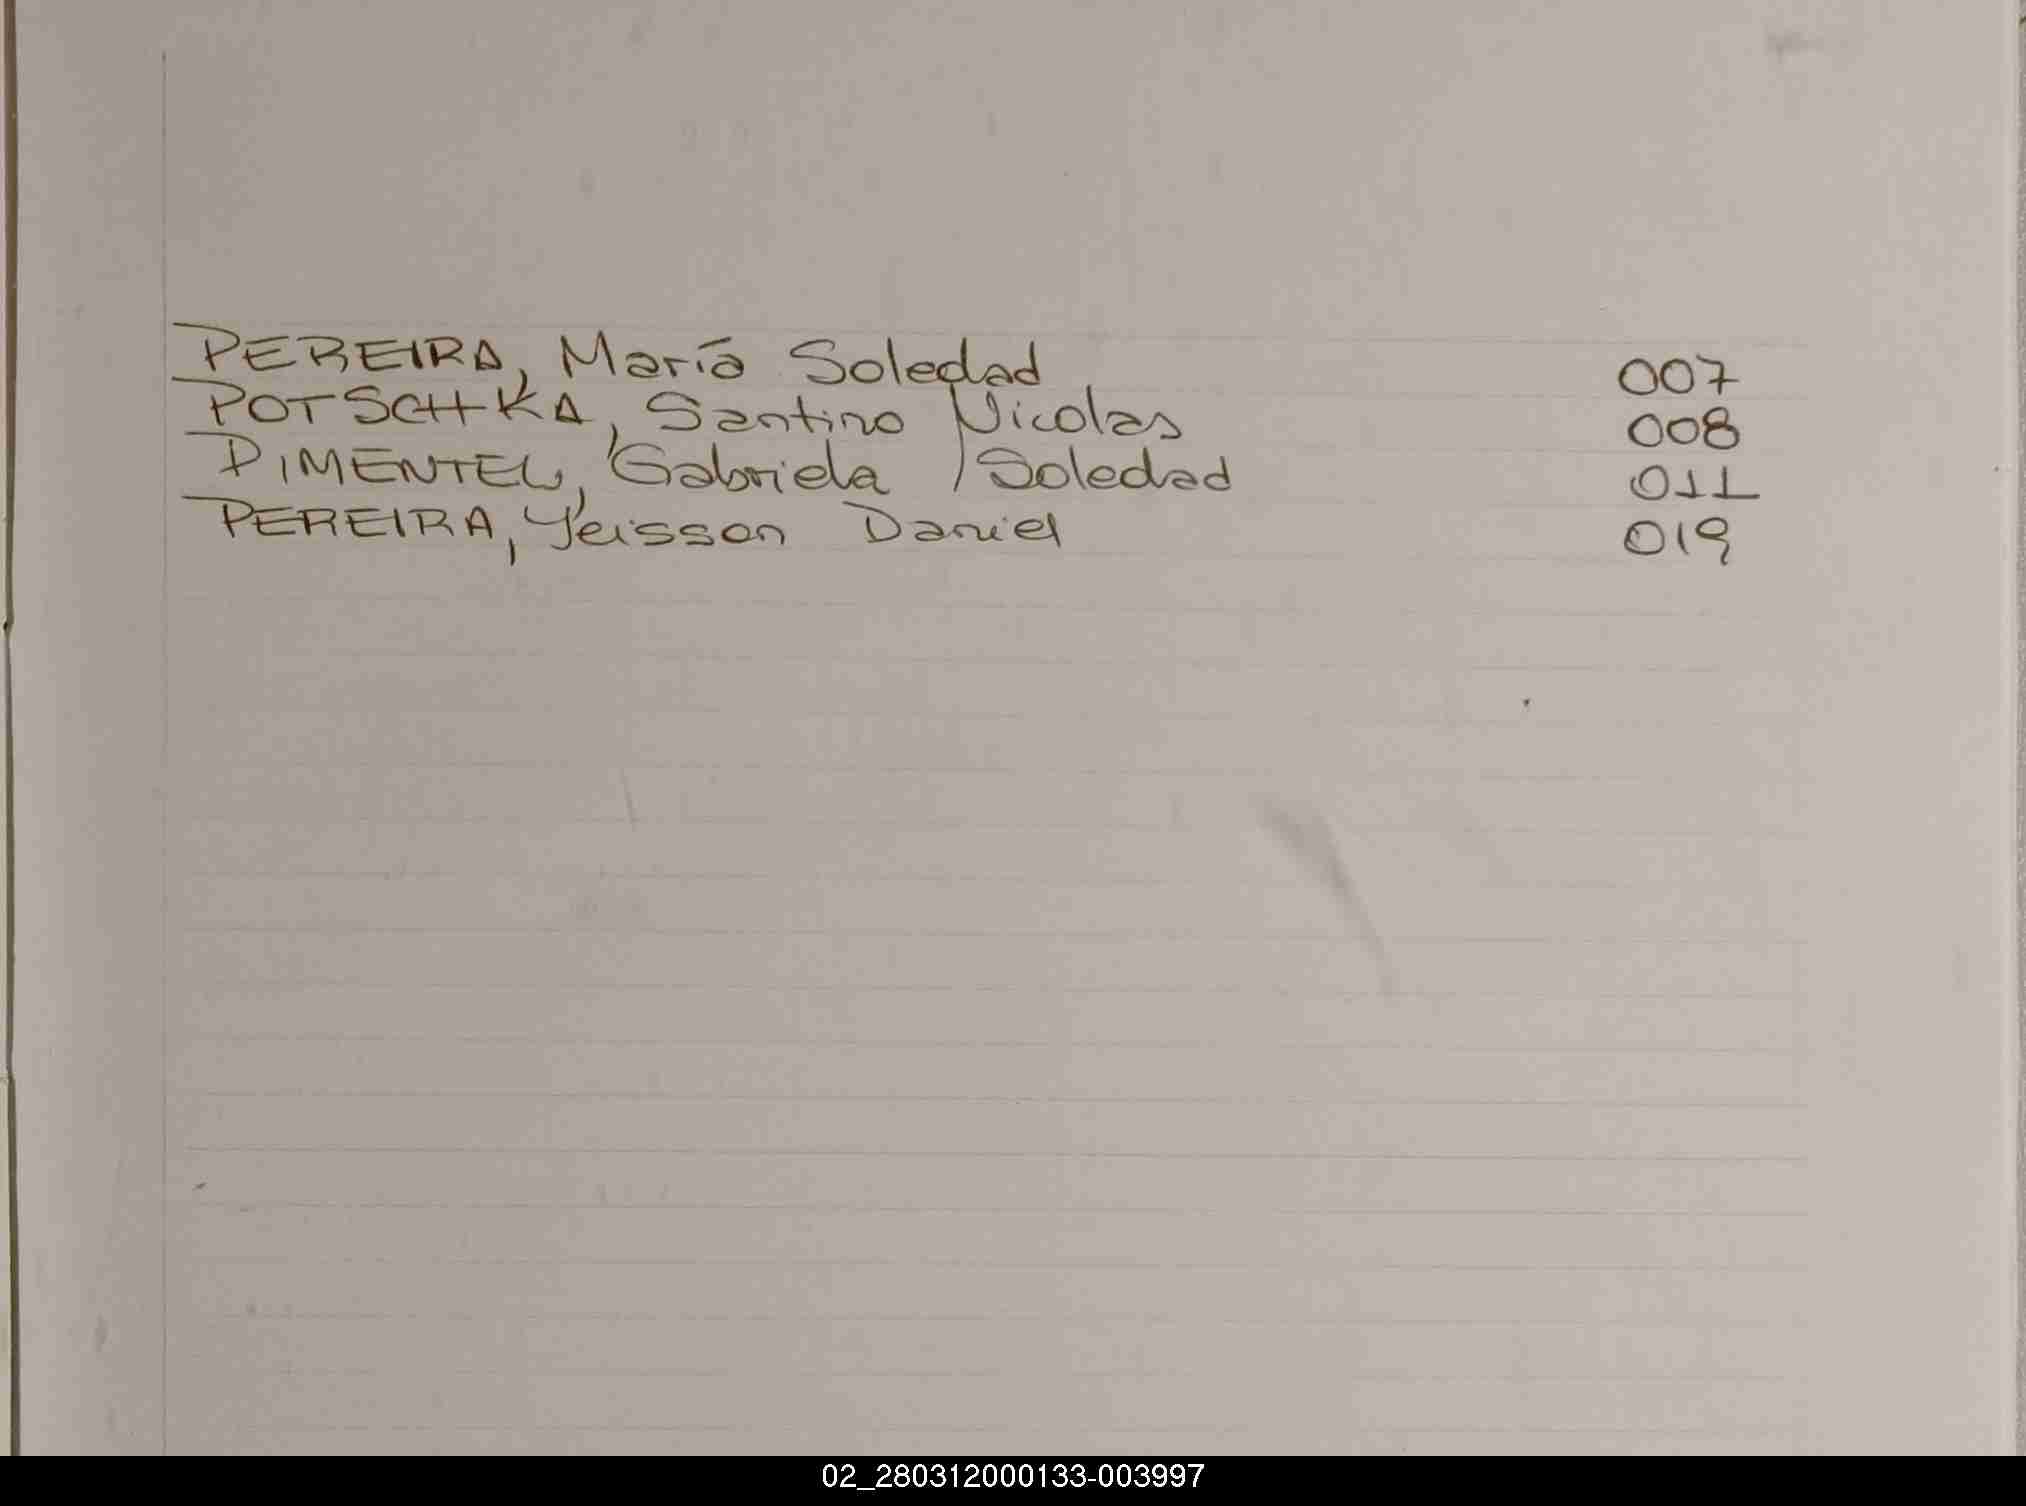 PEREIRA, María Soledad 007
POTSCHKA, Santino Nicolas 008
PIMENTEL, Gabriela Soledad 011
PEREIRA, Yeisson Daniel 019
02_280312000133-003997